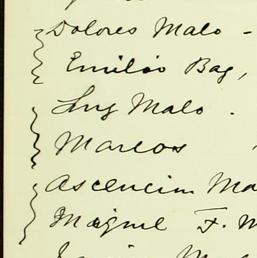 Dolores Malo -
Emilio Bag,
Luz Malo .
Marcos
Ascencion Ma
Miguel F. M